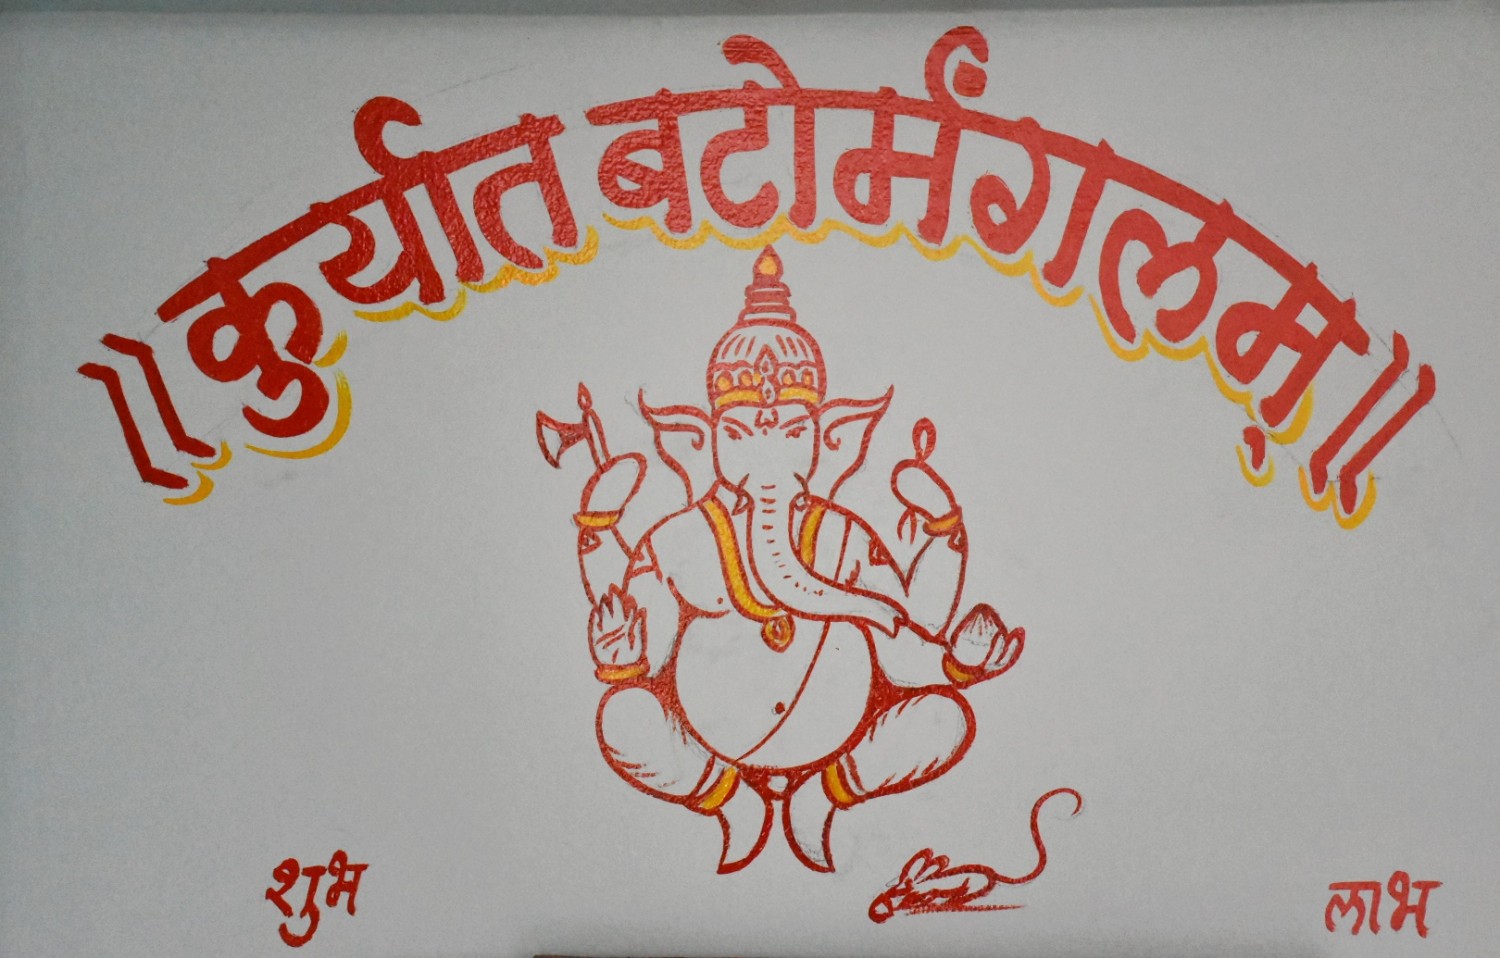 ॥ कुर्यात बटोर्मंगलम् ॥
शुभ
लाभ